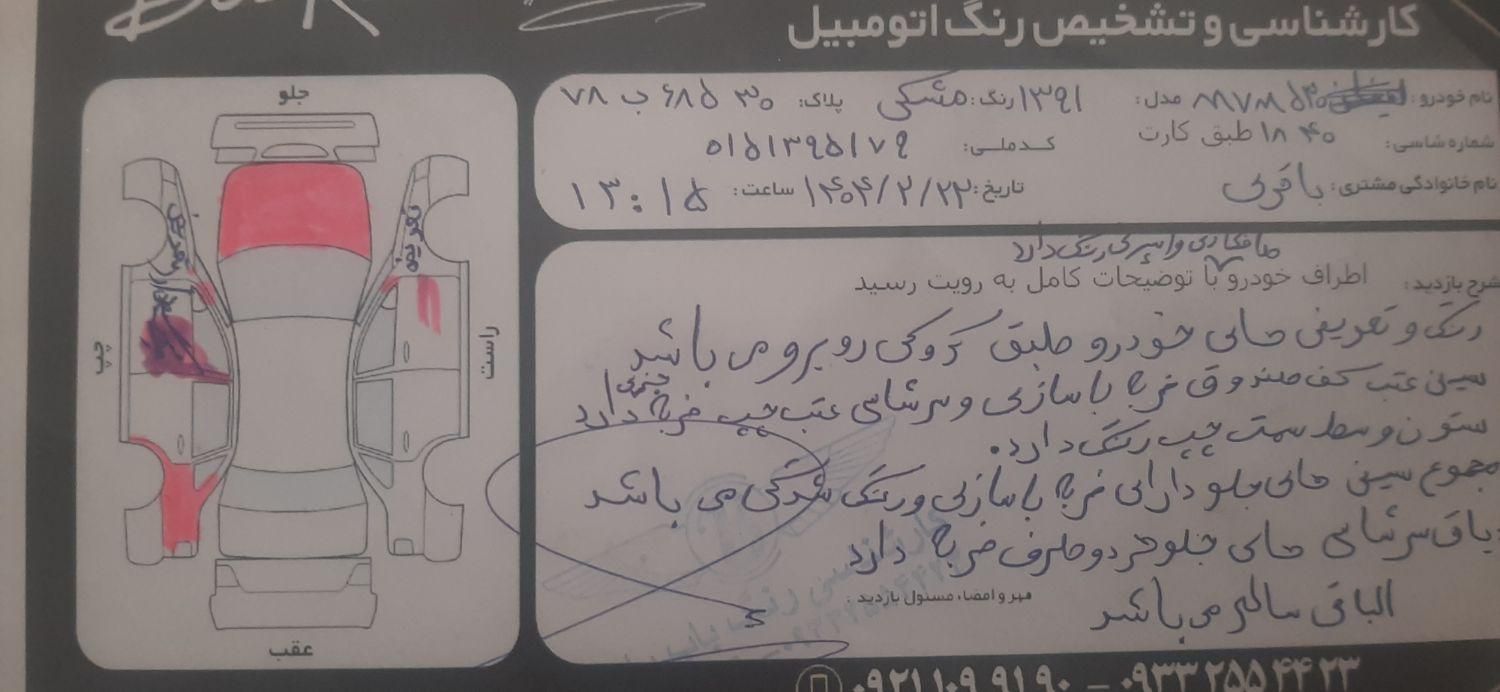 کارشناسی و تشخیص رنگ اتومبیل
نام خودرو: ۵۳۰ مدل: ۱۳۹۱ رنگ: مشکی پلاک: ۳۰ ۶۸۵ ب ۷۸
شماره شاسی: ۱۸۴۰ طبق کارت کد ملی: ۵۱۵۱۳۹۵۱۷۹
نام خانوادگی مشتری: باقری تاریخ: ۱۴۰۴/۲/۲۲ ساعت: ۱۳:۱۵
صافکاری و لیسه گیری رنگ دارد
شرح بازدید: اطراف خودرو با توضیحات کامل به رویت رسید
رنگ و تعویض های خودرو طبق کروکی روبرو می باشد
سینی عقب کف صندوق ضربه بازسازی و سرشاسی عقب چپ ضربه جزئی دارد
ستون وسط سمت چپ رنگ دارد.
مجموع سینی های جلو دارای ضربه بازسازی و رنگ شدگی می باشد
سرشاسی های جلو هر دو طرف ضربه دارد
الباقی سالم می باشد
مهر و امضاء مسئول بازدید:
۰۹۲۱ ۱۰۹ ۹۱ ۹۰ – ۰۹۳۳ ۲۵۵ ۴۴ ۲۳
جلو
چپ
راست
عقب
تعویض
تعویض